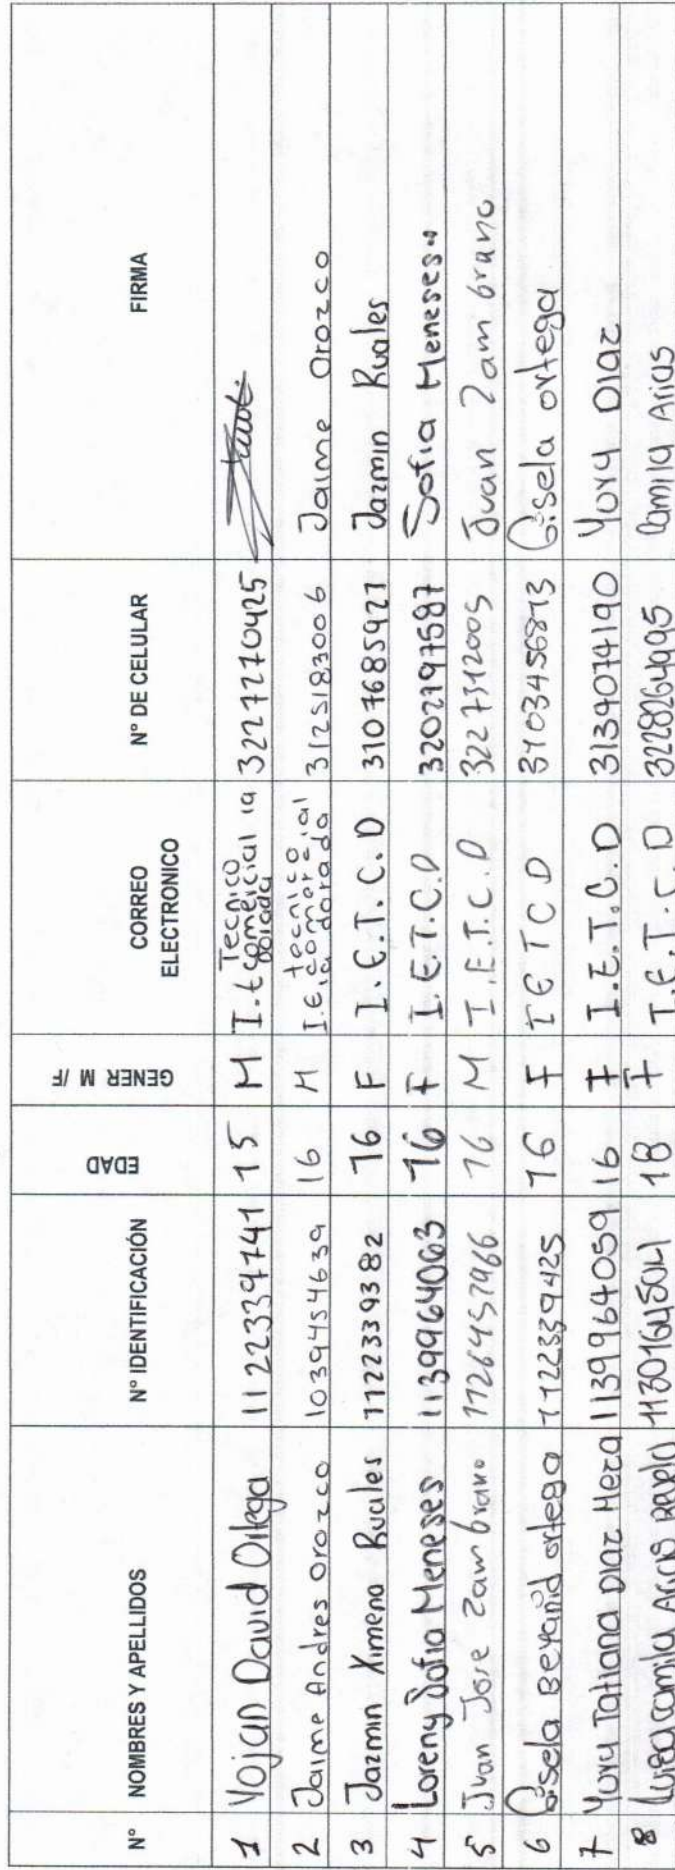 N° NOMBRES Y APELLIDOS N° IDENTIFICACIÓN EDAD GENER M /F CORREO ELECTRONICO N° DE CELULAR FIRMA
1 Yojan David Ortega 1122339741 15 M I.E Tecnico comercial la Dorada 3227270425
2 Jaime Andres Orozco 1039454639 16 M I.E. tecnico comercial la dorada 3125183006 Jaime Orozco
3 Jazmin Ximena Ruales 1122339382 16 F I.E.T.C.D 3107685921 Jazmin Ruales
4 Loreny Sofia Meneses 1139964063 16 F I.E.T.C.D 3202797587 Sofia Meneses
5 Juan Jose Zambrano 1126457966 16 M I.E.T.C.D 3227312005 Juan Zambrano
6 Gisela ortega 1122339425 16 F IETCD 3103456813 Gisela ortega
7 Yury Tatiana Diaz Meza 1139964059 16 F I.E.T.C.D 3134074190 Yury Diaz
8 Luisa camila Arias 18 F I.E.T.C.D 3228264995 Camila Arias